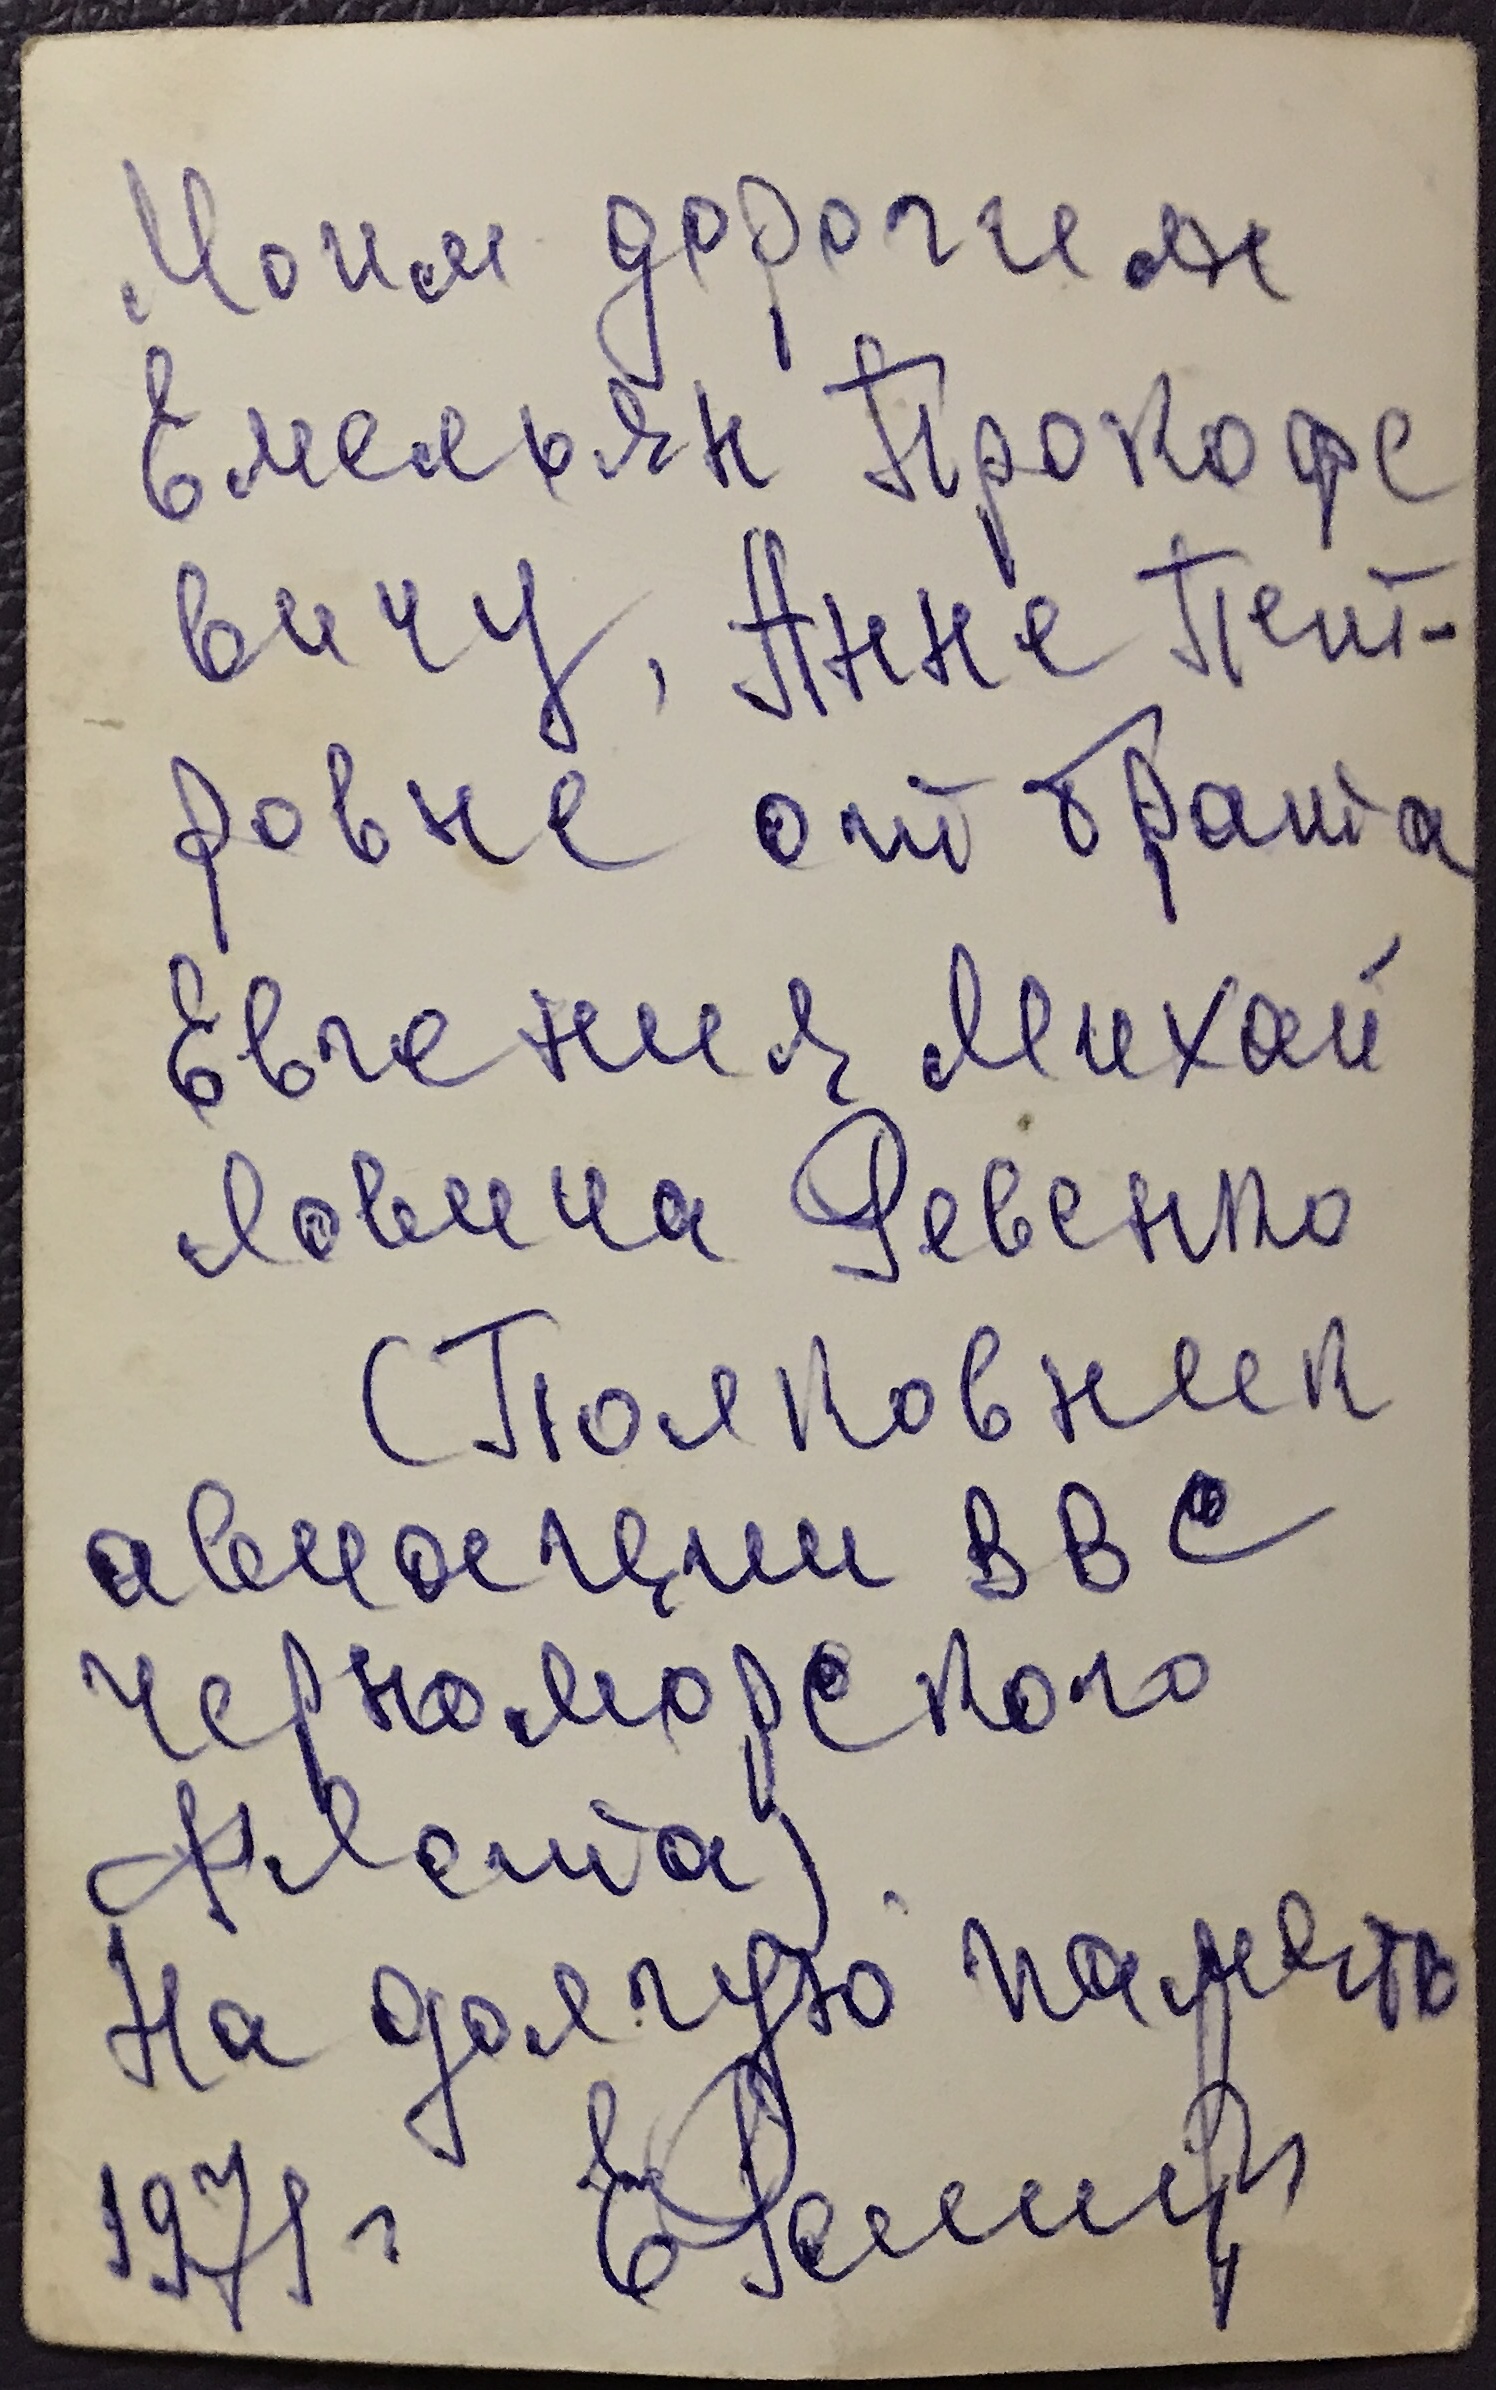 Моим дорогим
Емельян Прокофе
вичу, Анне Пет-
ровне от брата
Евгения Михай
ловича Ревенко
(Полковник
авиации ВВС
Черноморского
Флота)
На долгую память
1971 г